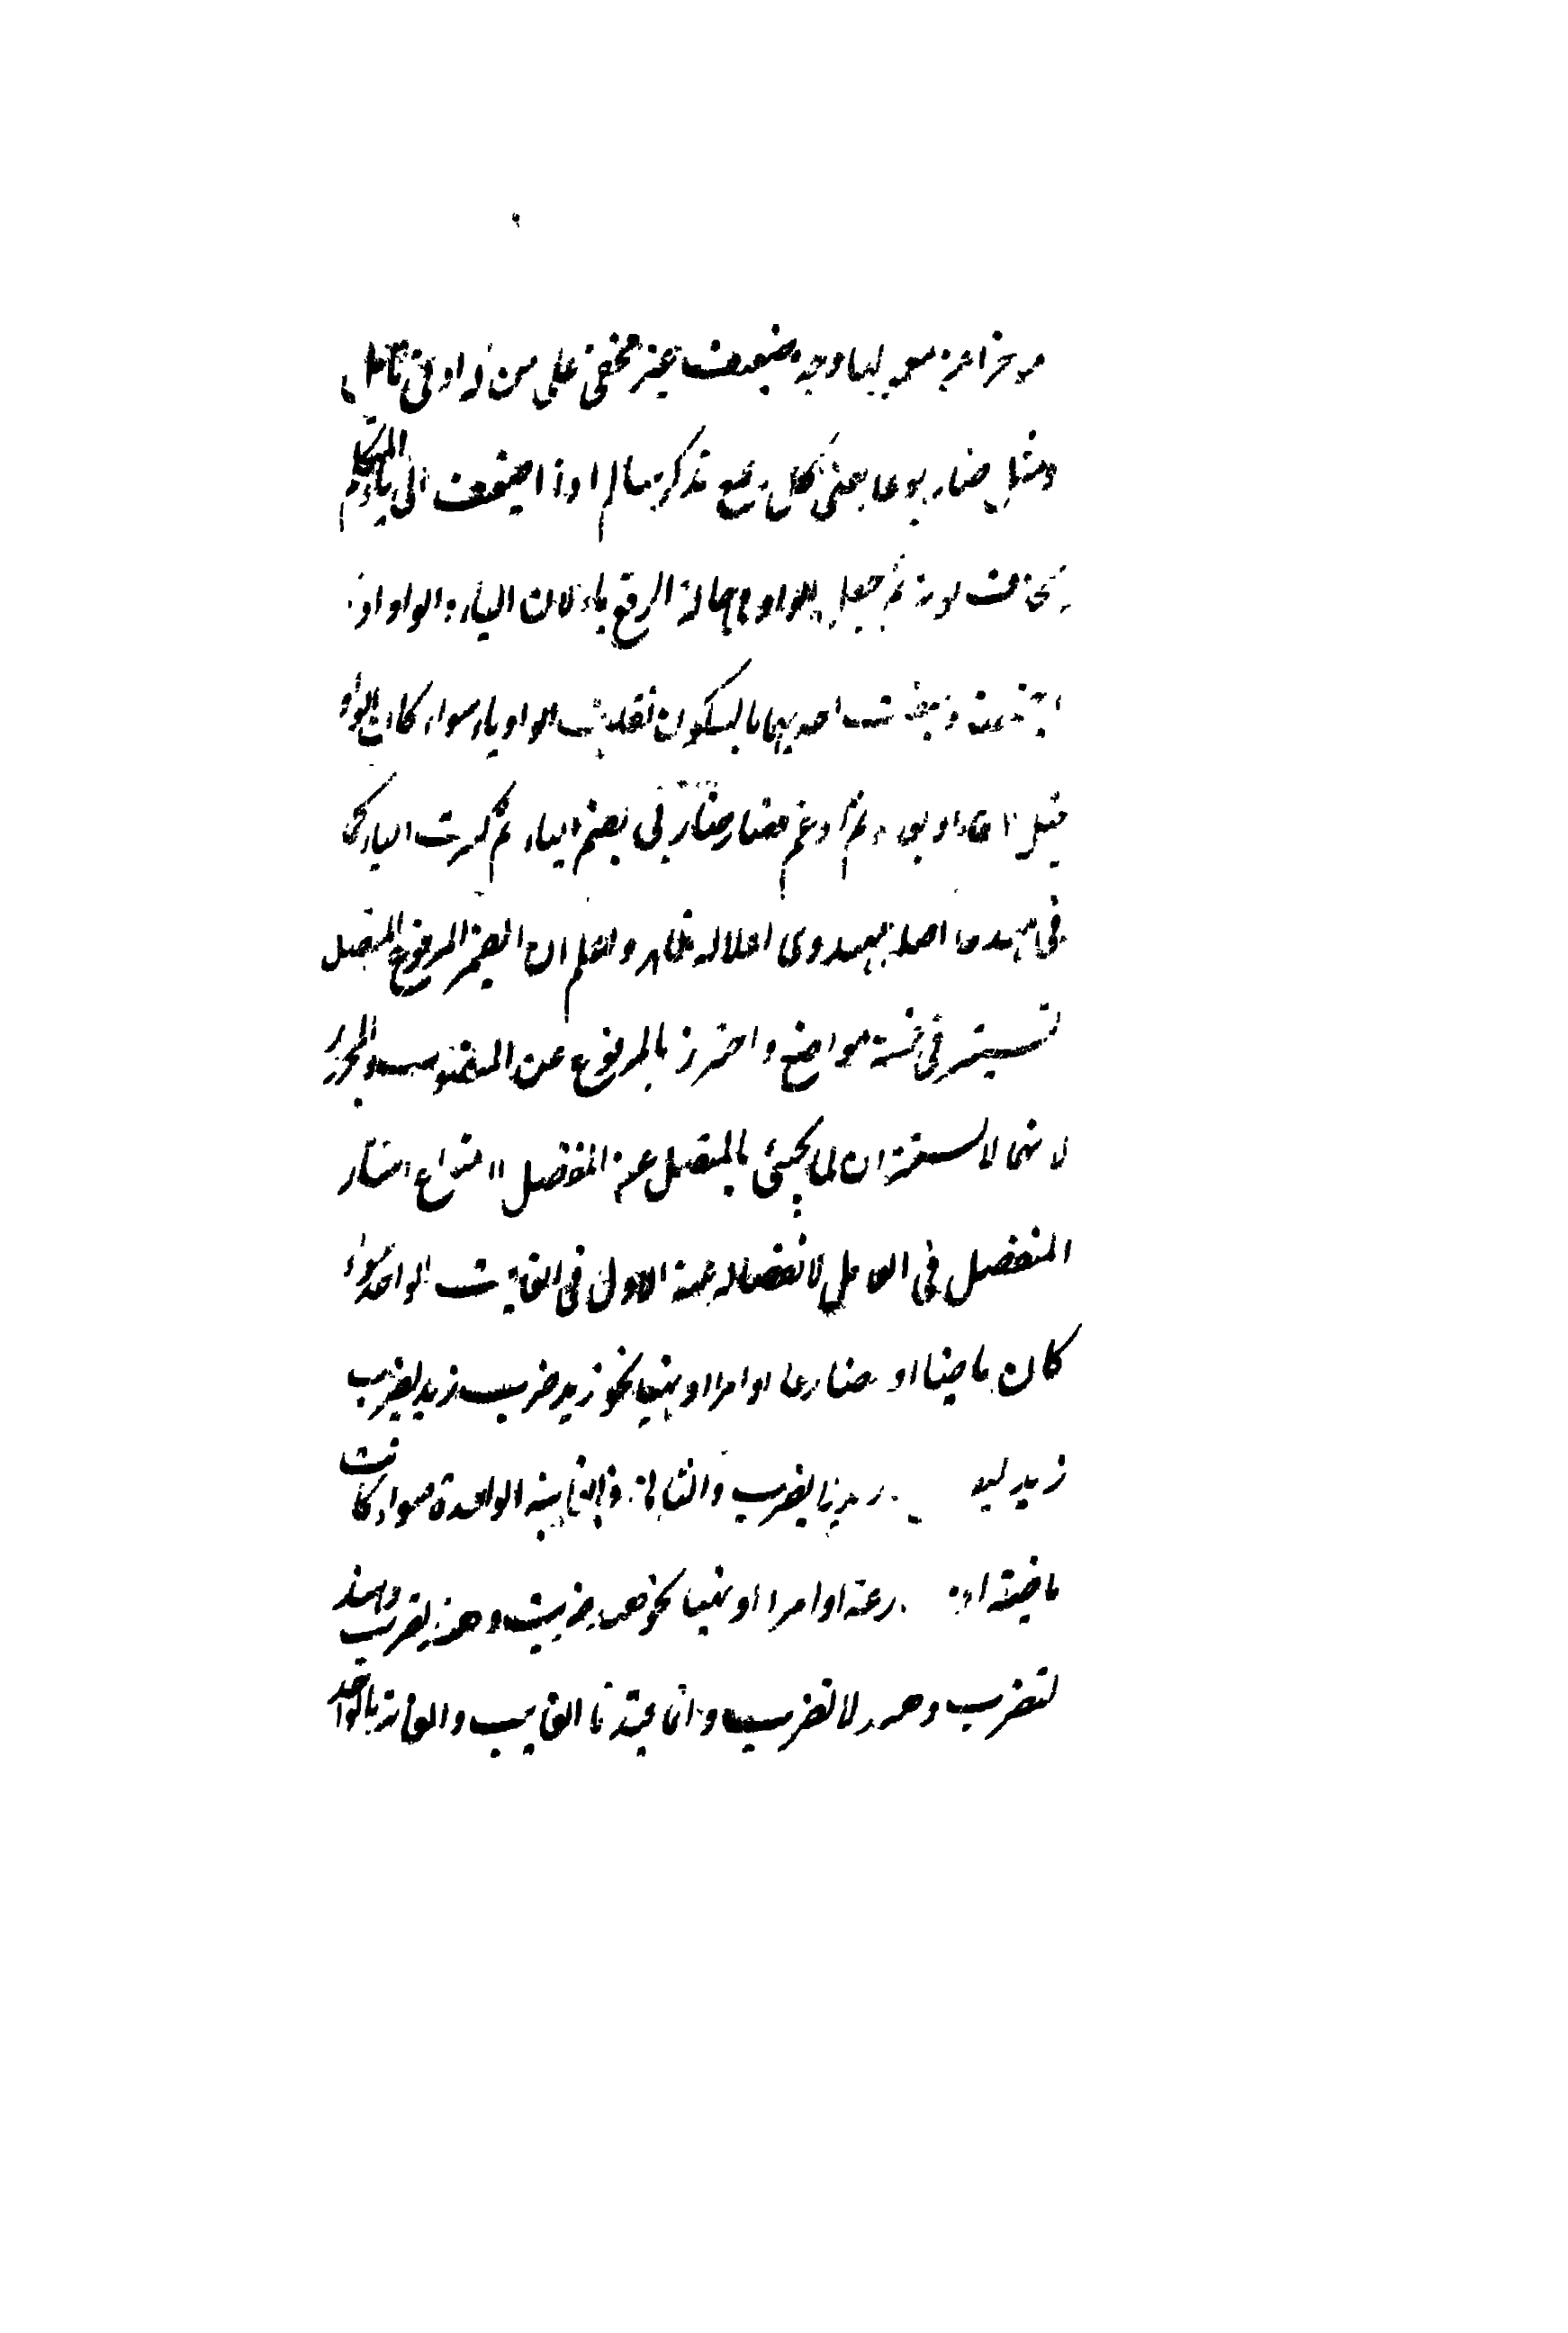 ضعيف غير مخفى على من له ادنى تأمل
ومثل ضاربوعا يعنى كل جمع مذكر سالم اذا اضيف الى ياء المتكلم
يحذف نونه ثم جعل الواو فى حالة الرفع ياء لان الياء والواو اذا
اجتمعت وسبقت احديهما بالسكون تقلبت الواو ياء سواء كان الواو
قبل الياء او بعده ثم ادغم فصار ضاربى بضم الباء ثم كسرت الباء كما
فى مهدى اصله مهدوى اعلاله ظاهر واعلم ان الضمير المرفوع المتصل
تستتر فى خمسة مواضع واحترز بالمرفوع عن المنصوب والمجرور
لانهما لا يستتران لما يجئ بالمتصل عن المنفصل لامتناع استتار
المنفصل فى العامل لانفصاله عنه الاول فى الغائب الواحد سواء
كان ماضيا او مضارعا او امرا او نهيا نحو زيد ضرب زيد يضرب
زيد ليضرب زيد لا يضرب والثانى فى الغائبة الواحدة سواء كانت
ماضية او مضارعة او امرا او نهيا نحو هند ضربت وهند تضرب وهند
لتضرب وهند لا تضرب وانما قيدنا الغايب والغائبة بالواحد